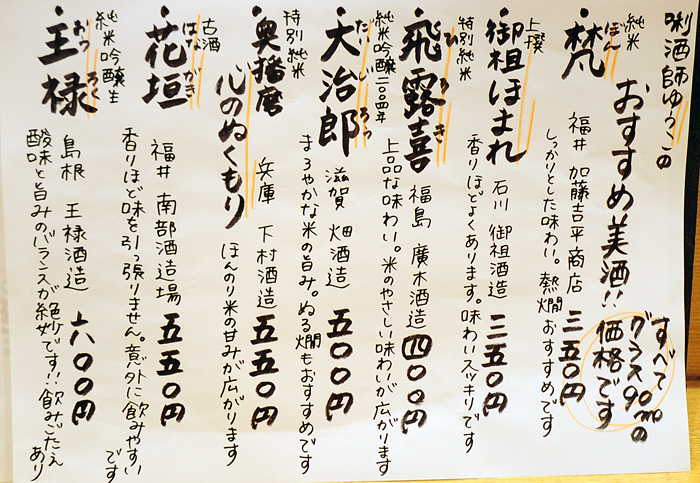 唎酒師ゆうこの
おすすめ美酒!!
すべて
グラス90mlの
価格です
純米
・梵 福井 加藤吉平商店 三五〇円
ぼん
しっかりとした味わい。熱燗おすすめです
上撰
・御祖ほまれ 石川 御祖酒造 三五〇円
香りほどよくあります。味わいスッキリです
特別純米
・飛露喜 福島 廣木酒造 四〇〇円
ひろき
上品な味わい。米のやさしい味わいが広がります
純米吟醸二〇〇四年
・大治郎 滋賀 畑酒造 五〇〇円
だいじろう
まろやかな米の旨み。ぬる燗もおすすめです
特別純米
・奥播磨
心のぬくもり 兵庫 下村酒造 五五〇円
ほんのり米の甘みが広がります
古酒
・花垣 福井 南部酒造場 五五〇円
はながき
香りほど味を引っ張りません。意外に飲みやすいです
純米吟醸生
・王禄 島根 王禄酒造 六〇〇円
おうろく
酸味と旨みのバランスが絶妙です!!飲みごたえあり